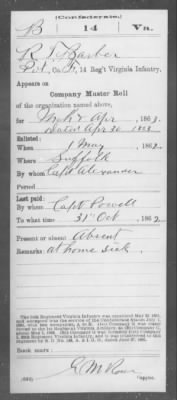 (Confederate.)
B 14 Va.
R. T. Barber
Pvt., Co. H, 14 Reg't Virginia Infantry.
Appears on
Company Muster Roll
of the organization named above,
for Mch & Apr, 1863.
dated Apr 30 1863
Enlisted:
When 1 May, 1862.
Where Suffolk
By whom Capt Alexander
Period
Last paid:
By whom Capt Powell
To what time 31 Oct, 1862
Present or absent Absent
Remarks: at home sick
Book mark:
(642) Copyist.